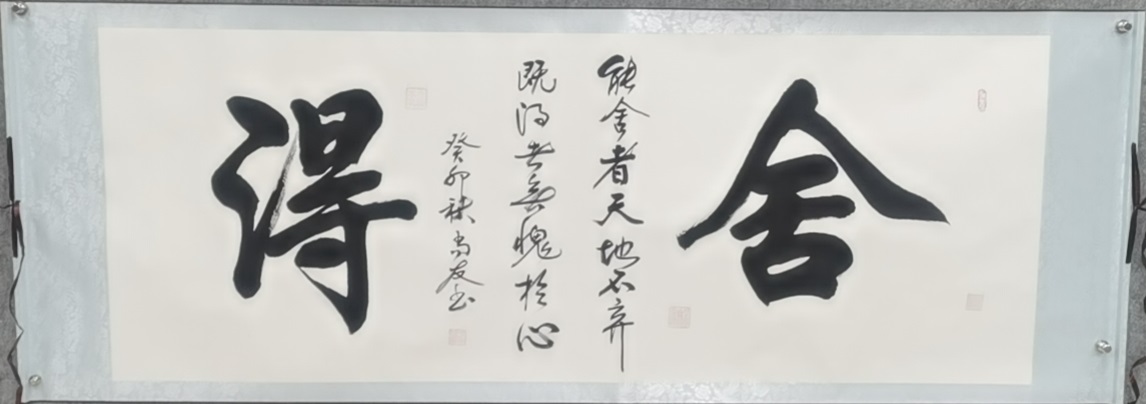 舍
能舍者天地不弃
既得者无愧於心
癸卯秋尚友书
得